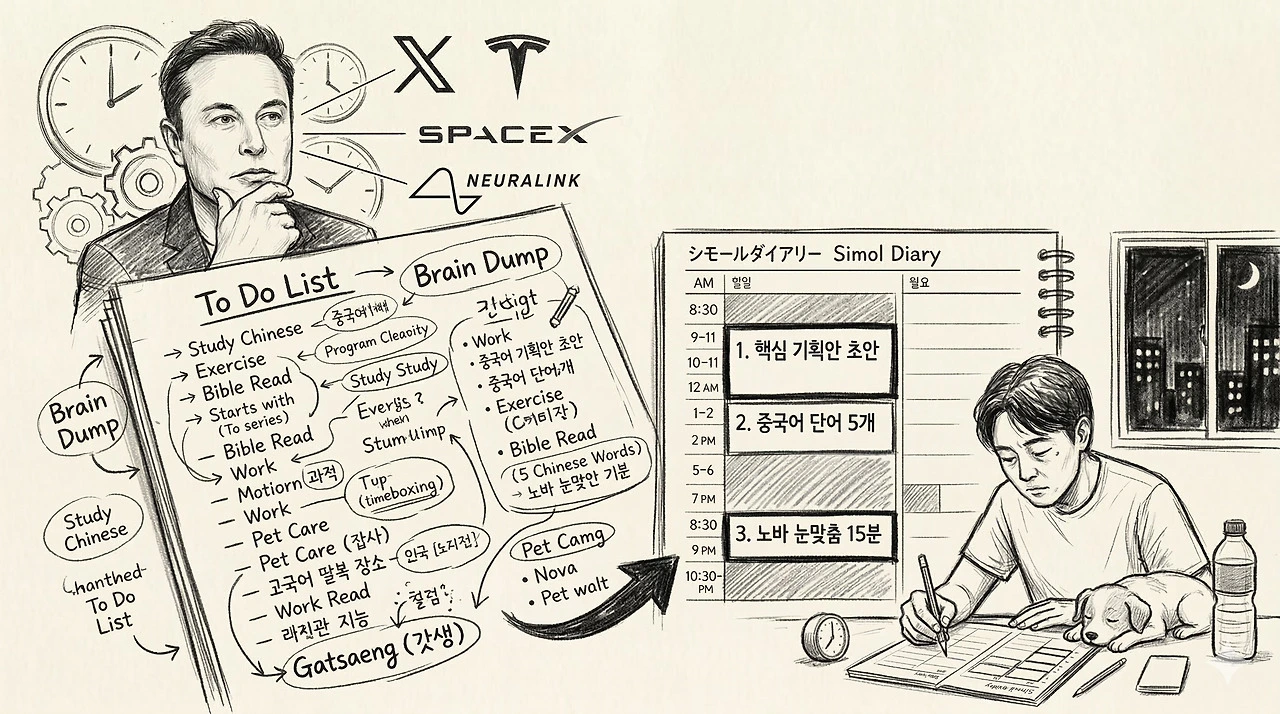 X
SPACEX
NEURALINK
To Do List
Brain Dump
Study Chinese
Exercise
Bible Read
Starts with
(To series)
Bible Read
Work
Motiorn 과적
Work
Pet Care
Pet Care (잡사)
고국어 말복 장소
Work Read
지능
Gatsaeng (갓생)
Program
Study Study
when
(timeboxing)
Work
중국어 기획안 초안
중국어 단어
Exercise
Bible Read
(5 Chinese Words)
→ 노바 눈맞안 기분
Pet Camg
Nova
Pet walt
Brain
Dump
Study
Chinese
To Do
List
シモールダイアリー Simol Diary
AM 힐일 월요
8:30
9-11
10-11
12 AM
1-2
2 PM
5-6
7 PM
8:30
9 PM
10:30-
PM
1. 핵심 기획안 초안
2. 중국어 단어 5개
3. 노바 눈맞춤 15분